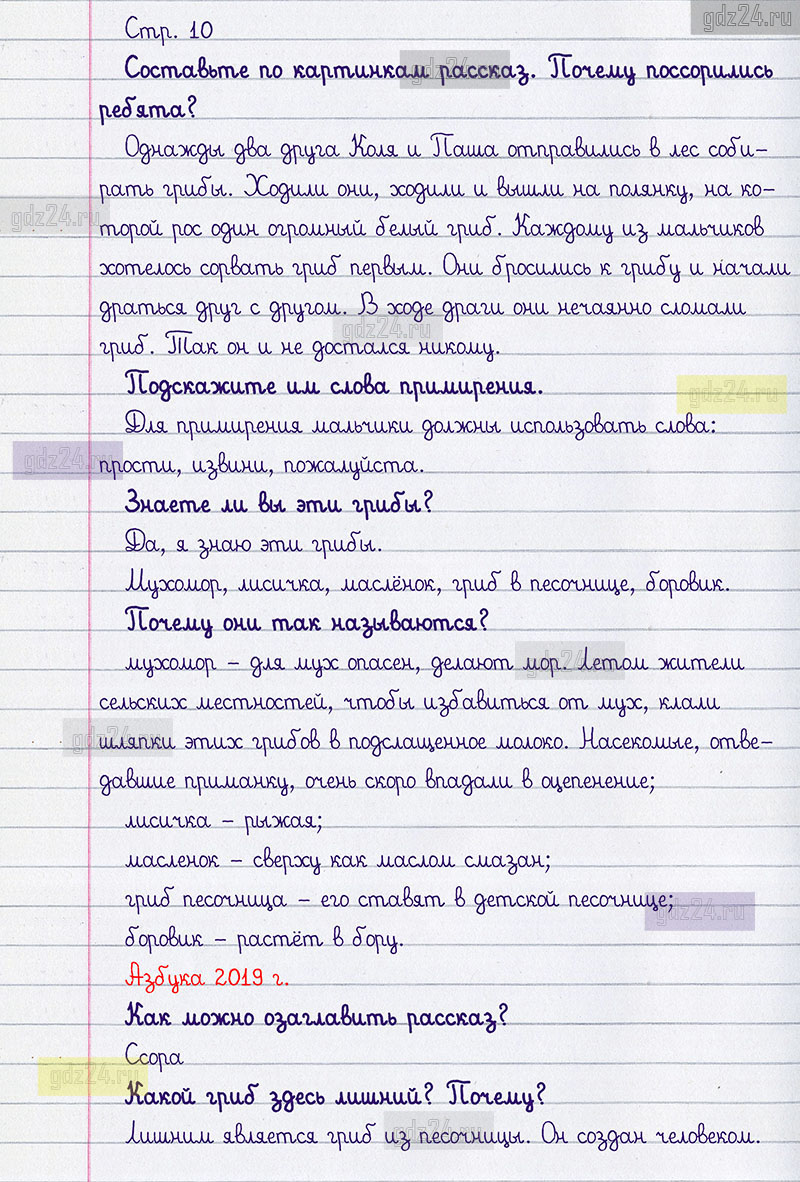 gdz24.ru
Стр. 10
Составьте по картинкам рассказ. Почему поссорились
ребята?
Однажды два друга Коля и Паша отправились в лес соби-
рать грибы. Ходили они, ходили и вышли на полянку, на ко-
торой рос один огромный белый гриб. Каждому из мальчиков
хотелось сорвать гриб первым. Они бросились к грибу и начали
драться друг с другом. В ходе драги они нечаянно сломали
гриб. Так он и не достался никому.
Подскажите им слова примирения.
Для примирения мальчики должны использовать слова:
прости, извини, пожалуйста.
Знаете ли вы эти грибы?
Да, я знаю эти грибы.
Мухомор, лисичка, маслёнок, гриб в песочнице, боровик.
Почему они так называются?
мухомор – для мух опасен, делают мор. Летом жители
сельских местностей, чтобы избавиться от мух, клали
шляпки этих грибов в подслащенное молоко. Насекомые, отве-
давшие приманку, очень скоро впадали в оцепенение;
лисичка – рыжая;
масленок – сверху как маслом смазан;
гриб песочница – его ставят в детской песочнице;
боровик – растёт в бору.
Азбука 2019 г.
Как можно озаглавить рассказ?
Ссора
Какой гриб здесь лишний? Почему?
Лишним является гриб из песочницы. Он создан человеком.